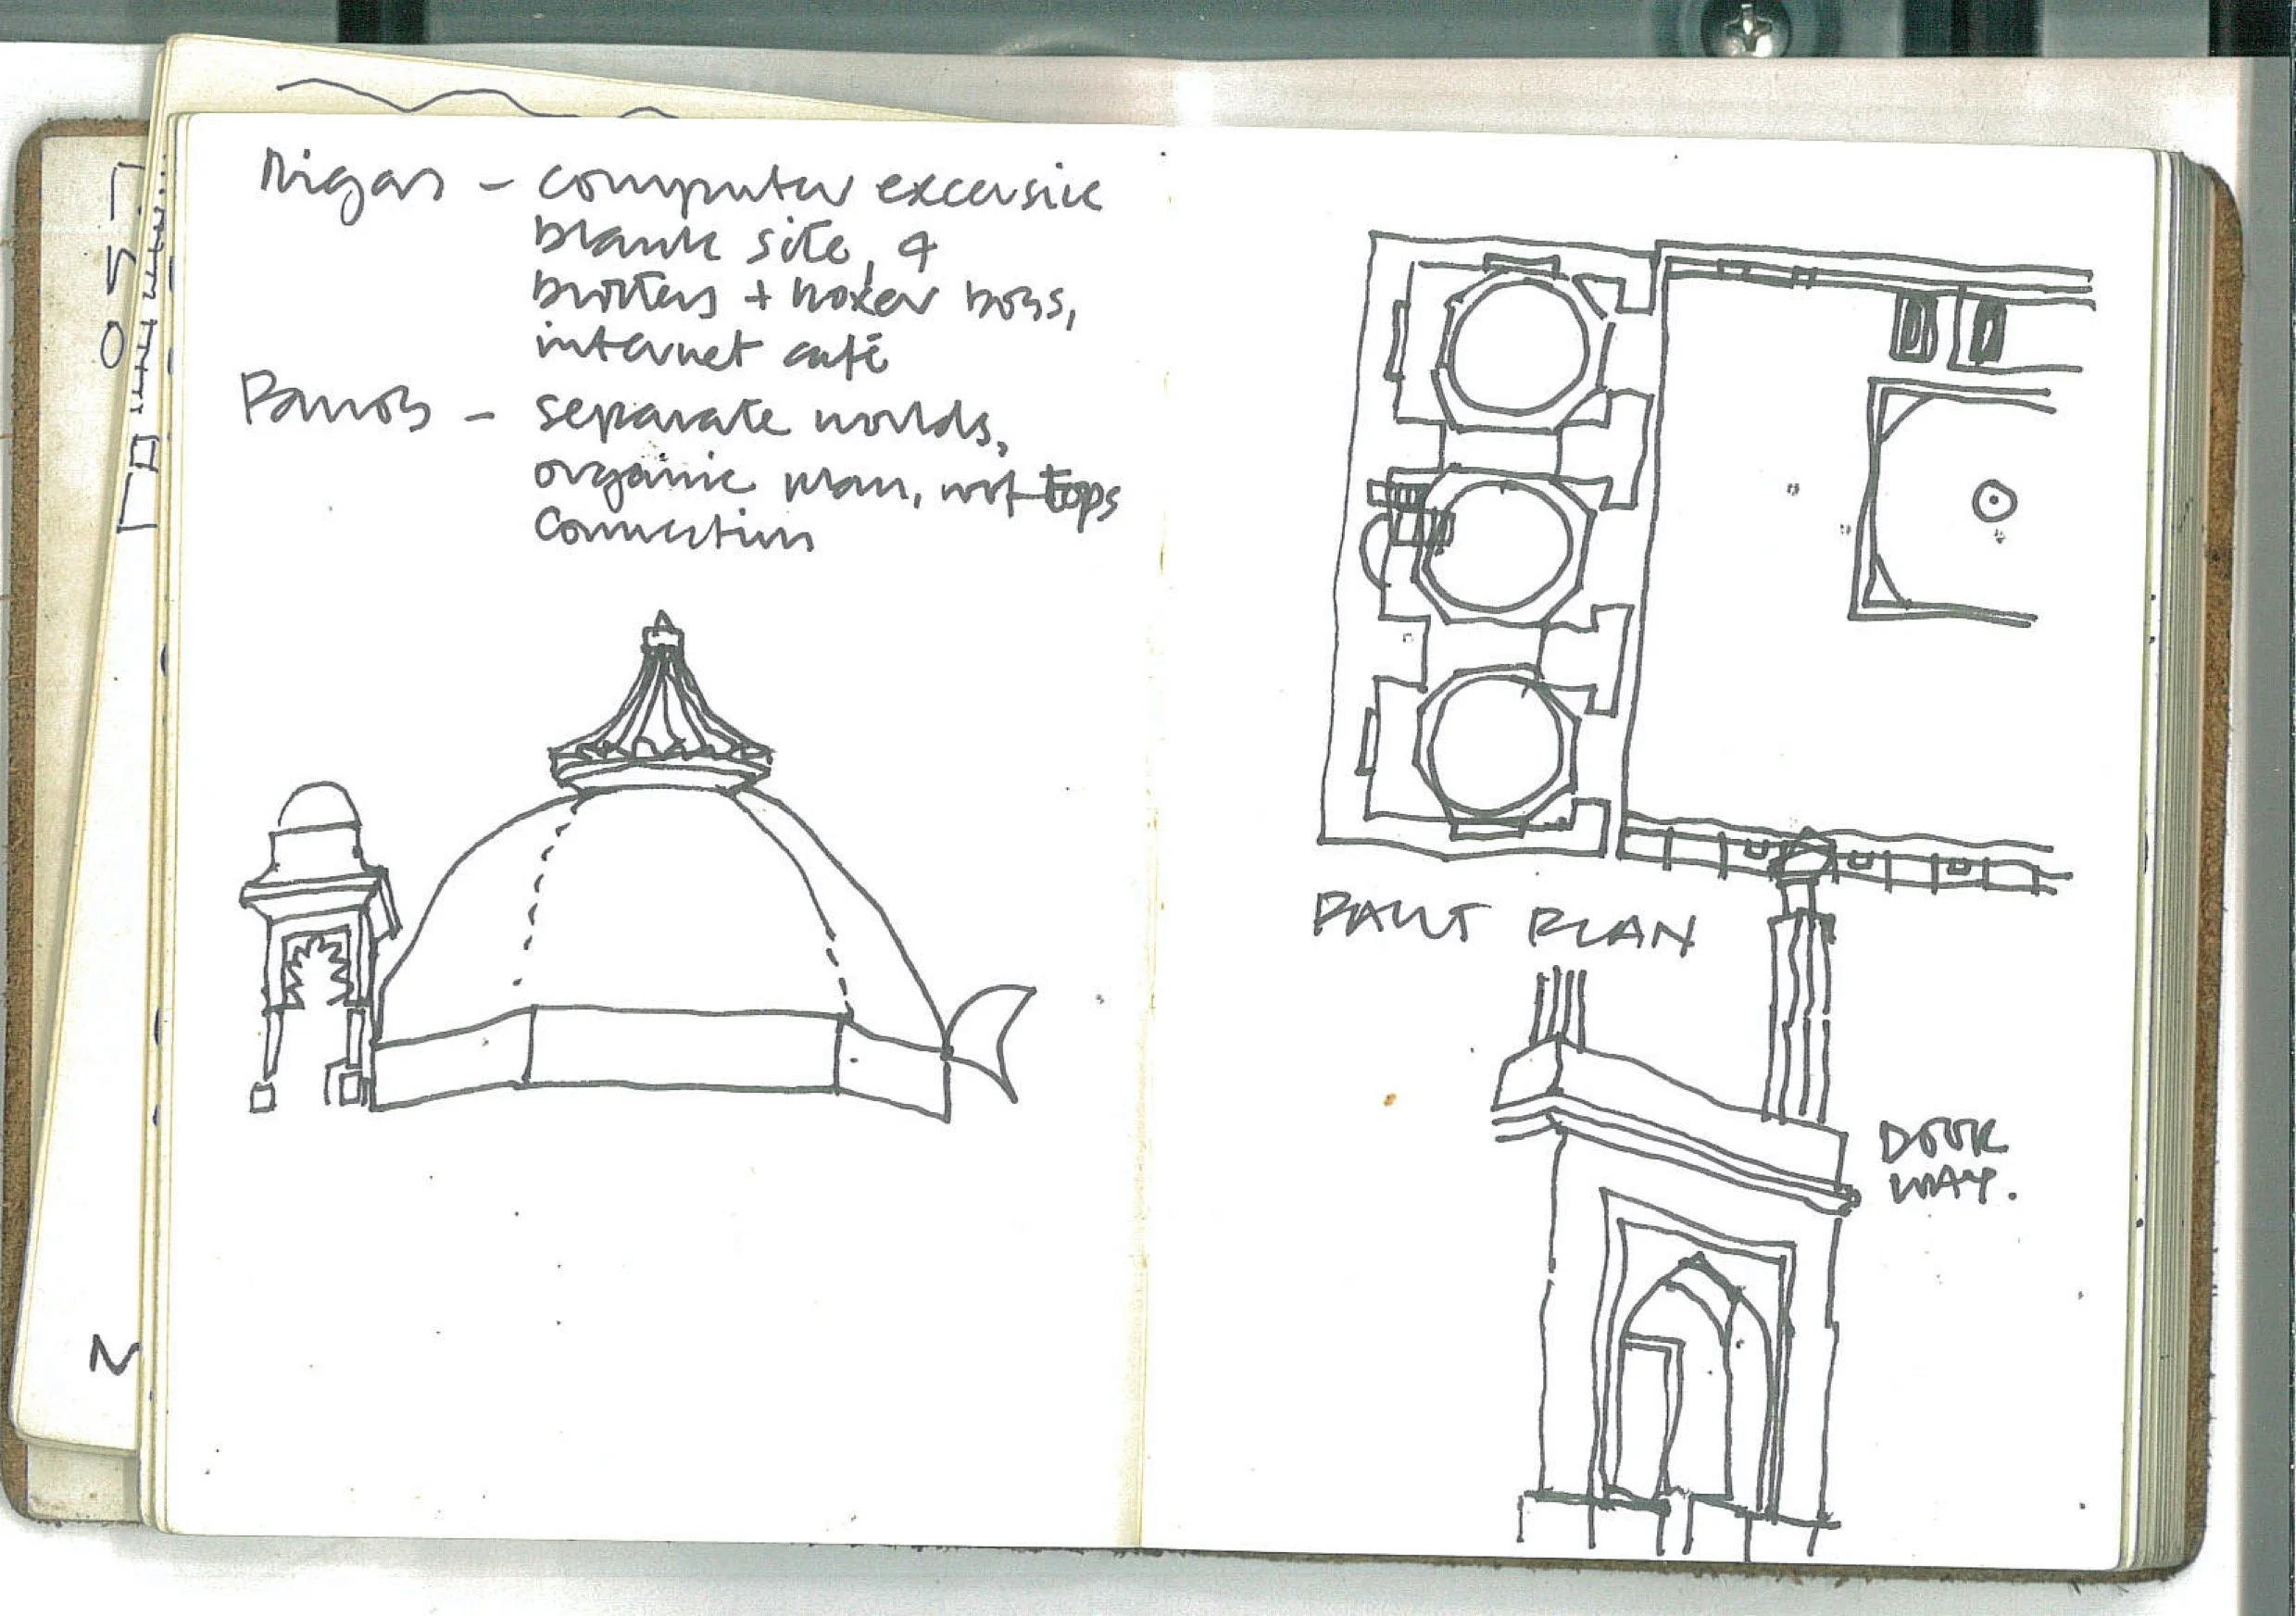 computer excersise
blank site, &
brothers + boxer boys,
internet café
separate worlds,
organic plan, not tops
connections
PART PLAN
DOOR
WAY.